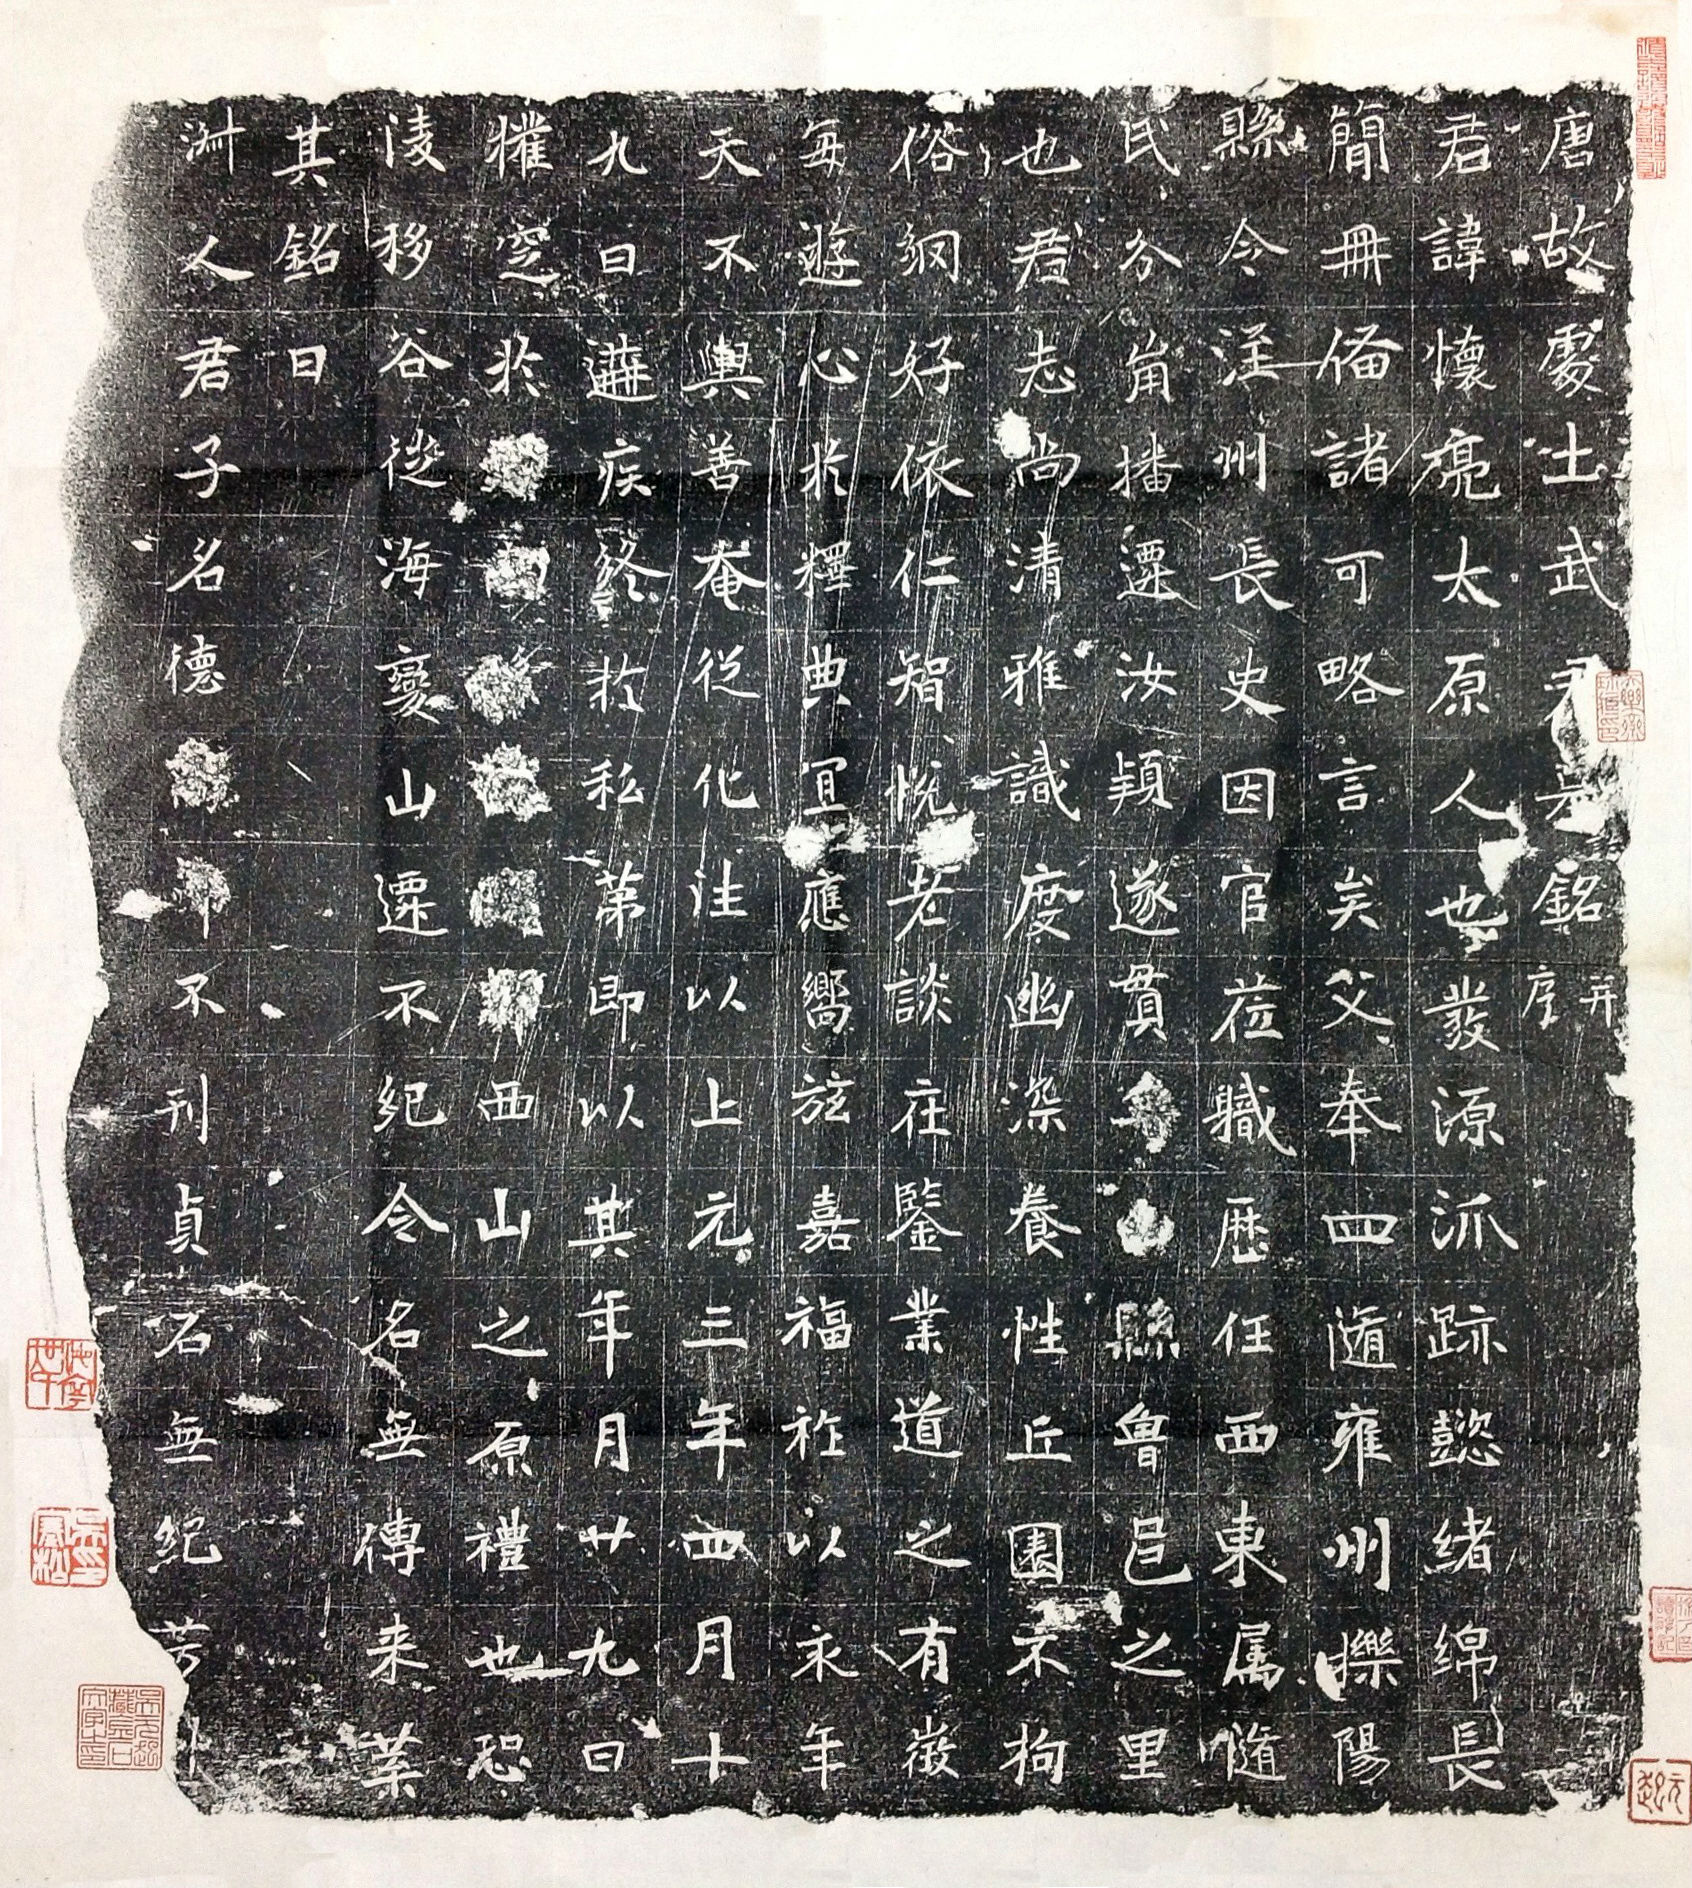 唐故處士武君□□銘 并序
君諱懷亮太原人也發源派跡懿緒綿長
簡冊俻諸可略言矣父奉四隨雍州櫟陽
縣令淫州長史因官莅職歷任西東属隨
氏分崩播遷汝潁遂貫□□縣魯邑之里
也君志尚清雅識度幽深養性丘園不拘
俗網好依仁智悦老談庄鑒業道之有徵
每遊心於釋典冝應嚮旌嘉福祚以永年
天不輿善奄從化往以上元三年四月十
九日遘疾終於私第即以其年月廿九日
權窆於□□□□□□西山之原禮也恐
陵移谷徙海變山遷不紀令名無傳来葉
其銘曰
淋人君子名德□□不刊貞石無紀芳